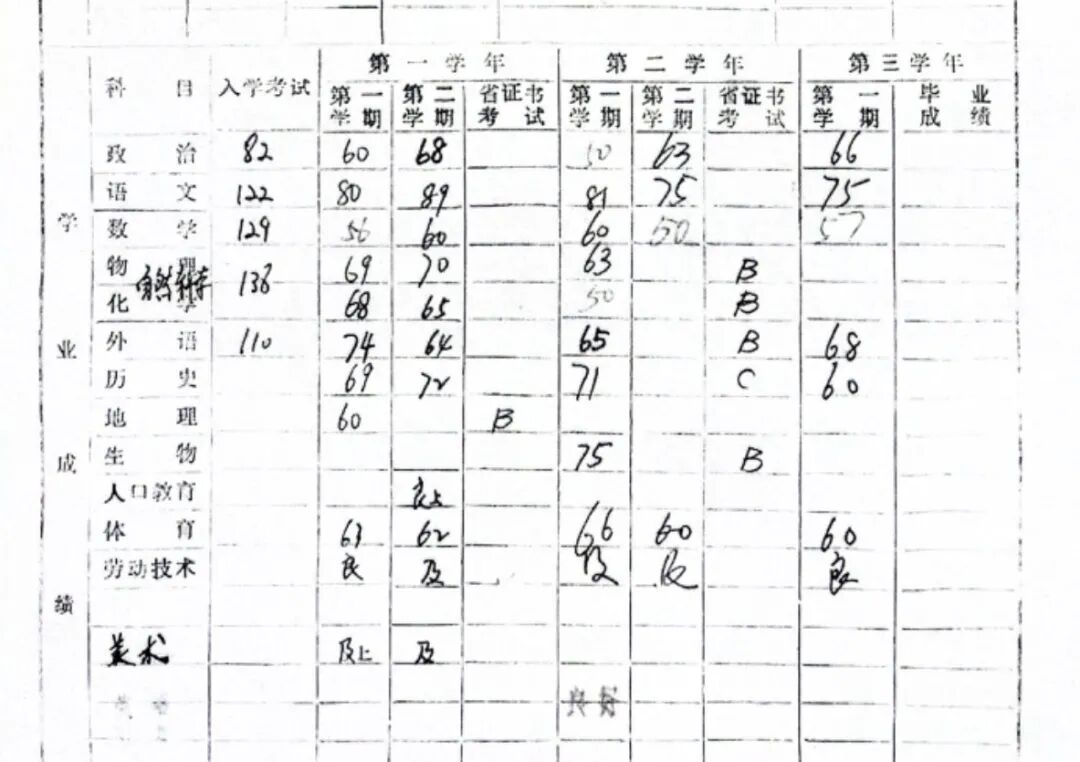 第一学年 第二学年 第三学年
科目 入学考试 第一学期 第二学期 省证书考试 第一学期 第二学期 省证书考试 第一学期 毕业成绩
学业成绩
政治 82 60 68 50 63 66
语文 122 80 89 81 75 75
数学 129 56 60 60 50 57
物理 69 70 63 B
自然科学 138
化学 68 65 50 B
外语 110 74 64 65 B 68
历史 69 72 71 C 60
地理 60 B
生物 75 B
人口教育 良上
体育 63 62 66 60 60
劳动技术 良 及 及 及 良
美术 及上 及
良好